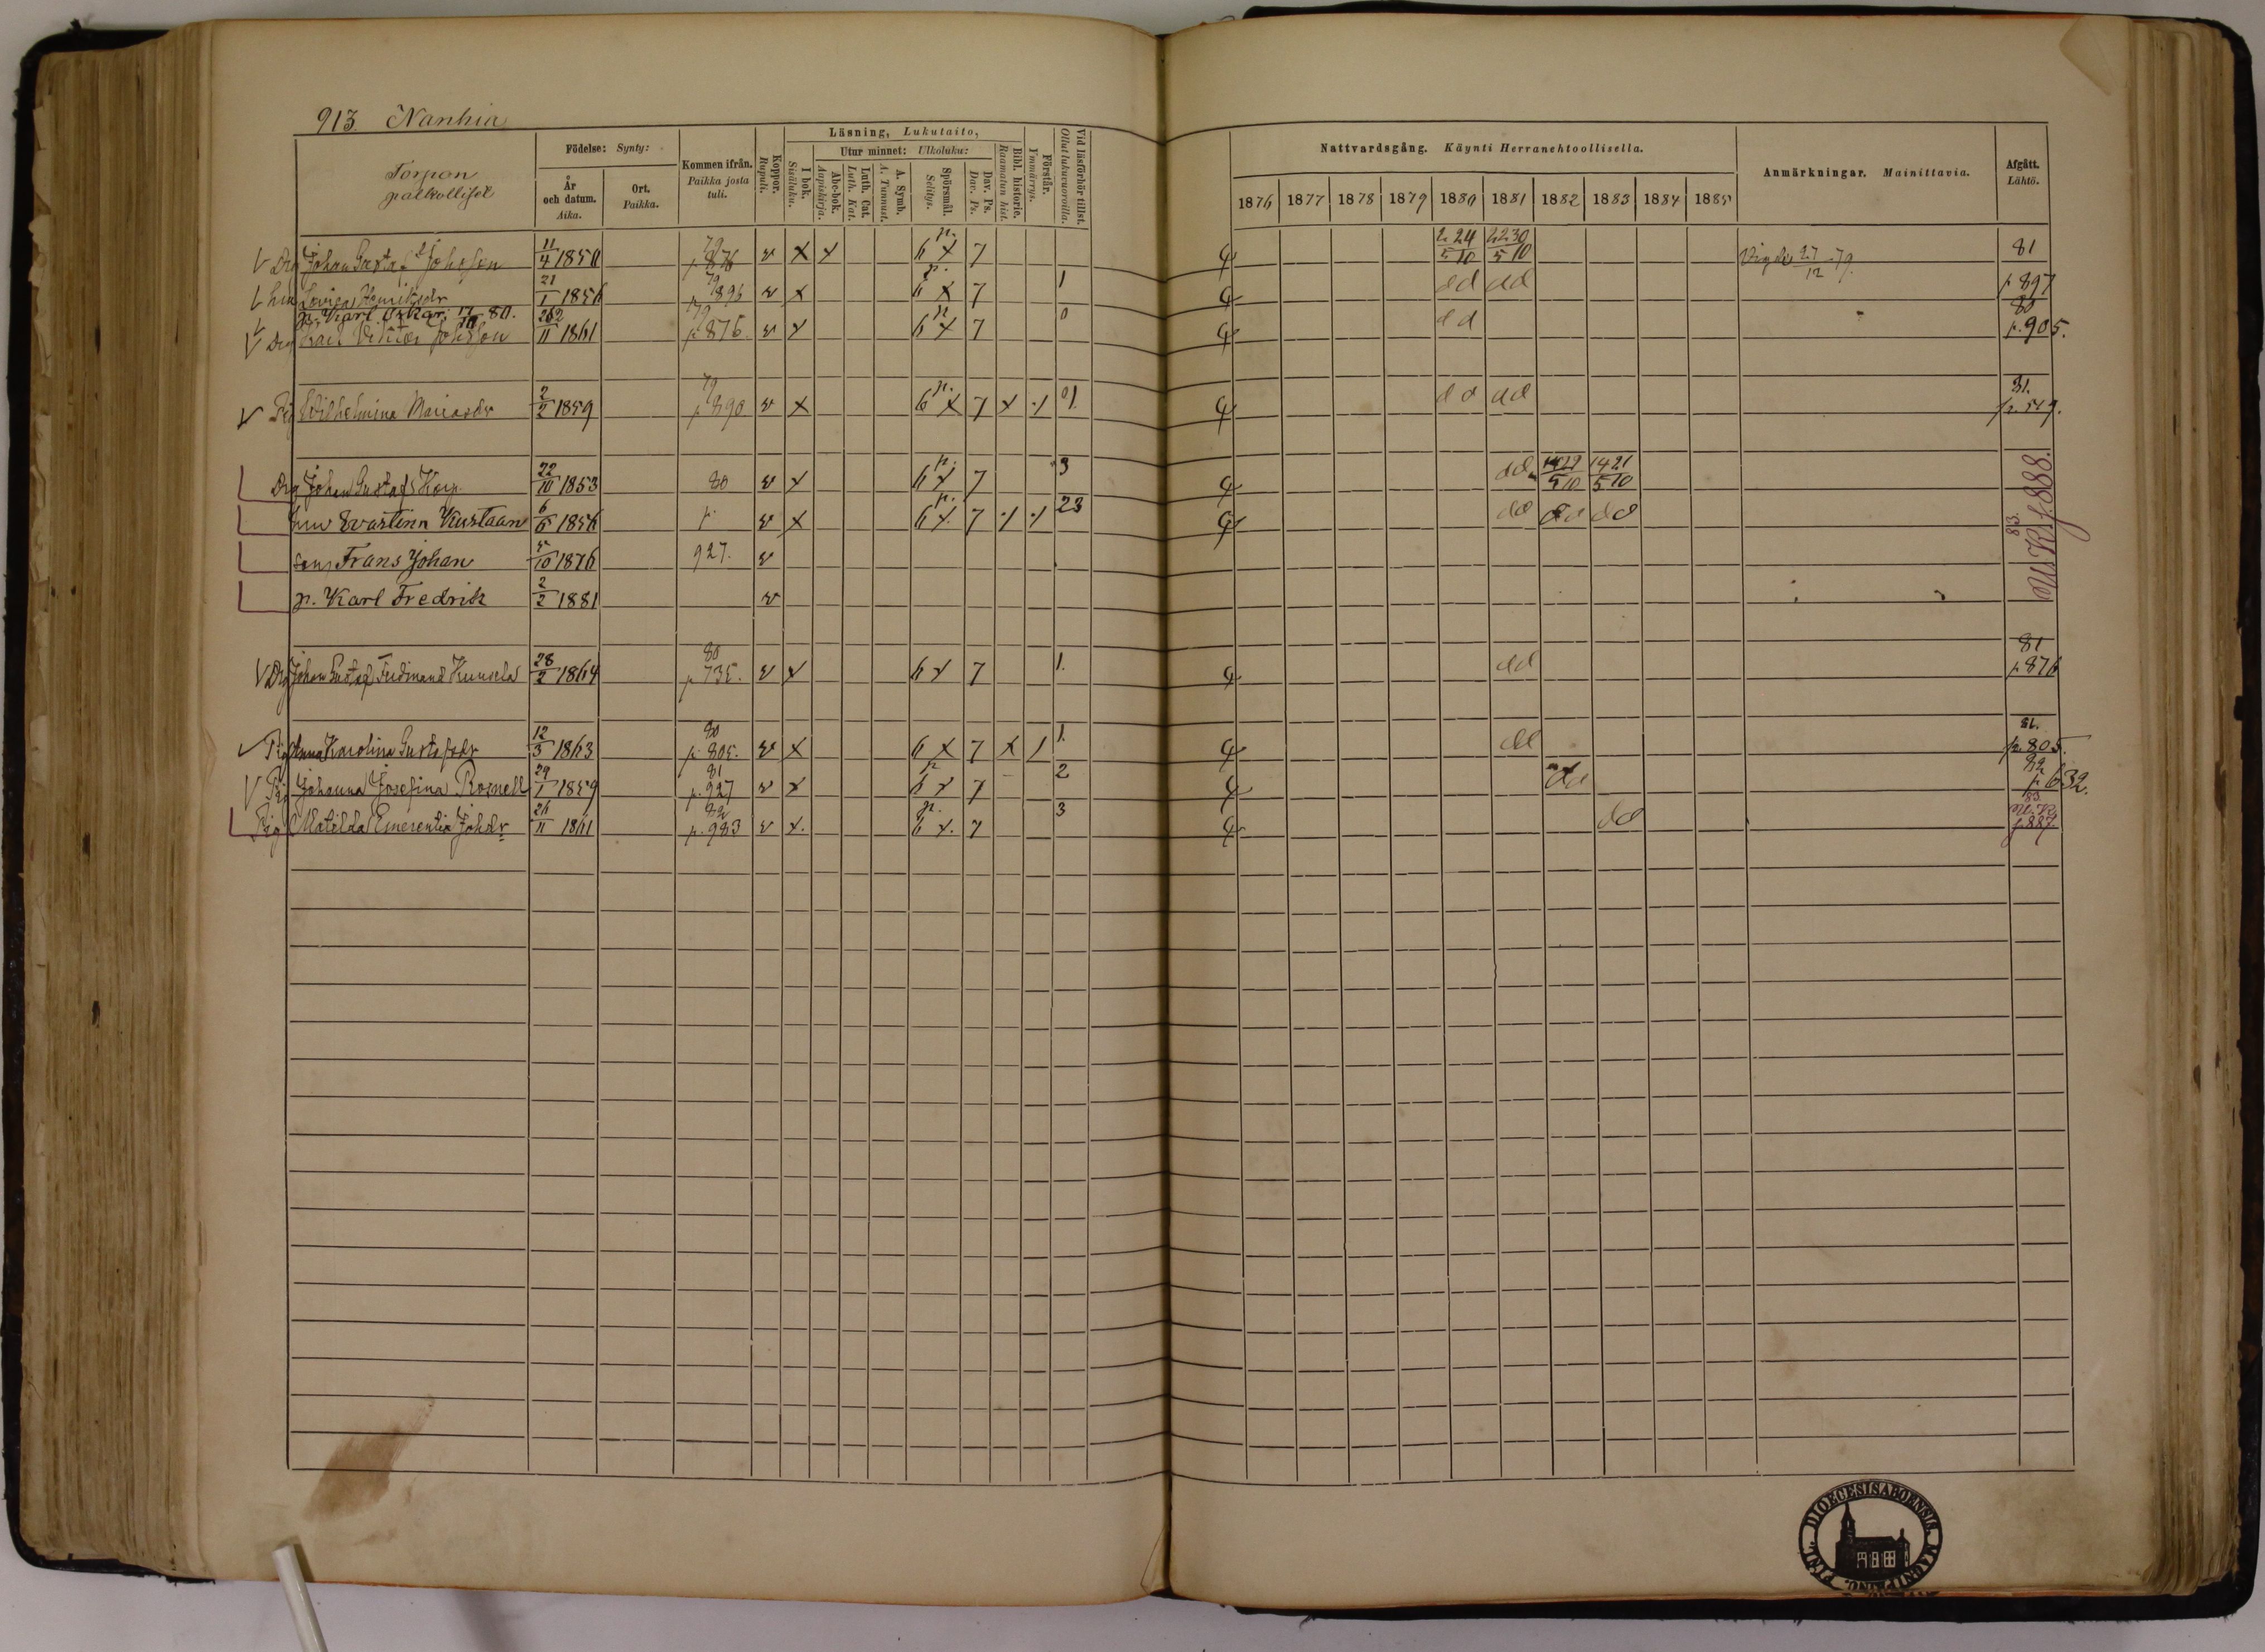 913. Nanhia
Torpon
palkolliset
Födelse: Synty:
År
och datum.
Aika.
Ort.
Paikka.
Kommen ifrån.
Paikka josta
tuli.
Koppor.
Rupuli.
Läsning, Lukutaito,
I bok.
Sisäluku.
Utur minnet: Ulkoluku:
Abc-bok.
Aapiskirja.
Luth. Cat.
Luth. Kat.
A. Symb.
A. Tunnust.
Spörsmål.
Selitys.
Dav. Ps.
Dav. Ps.
Bibl. historie.
Raamatun hist.
Förstår.
Ymmärrys.
Vid läsförhör tillst.
Ollut lukuvuoroilla.
Nattvardsgång. Käynti Herranehtoollisella.
1876 1877 1878 1879 1880 1881 1882 1883 1884 1885
Anmärkningar. Mainittavia.
Afgått.
Lähtö.
Drg Johan Gustaf Johsson 11/4 1850 79 p 876 v x x 6 x 7 2 24/5 10 2 2 30/5 10 Vigde 27/12 79. 81
hu Lovisa Henriksdr 21/1 1856 79 p 896 v x 6 x 7 1 dd dd p 897
p. Karl Oskar 17/10 80.
Drg Karl Viktor Johsson 11 1861 79 p 876. v x 6 x 7 0 dd 80 p. 905.
Pig Wilhelmina Mariasdr 2/2 1859 79 p 890 v x 6 x 7 x 1 dd dd 81. p. 549.
Drg Johan Gustafs Korp. 22/10 1853 80 v x 6 x 7 3 dd 14 21/5 10
hu Evastina Kustaan 6/6 1856 p. v x 6 x 7 23 dd dd dd
son Frans Johan /10 1876 927. v
p. Karl Fredrik 2/2 1881 v
83. U.K. f. 888.
Drg Johan Gustaf Ferdinand 28/2 1864 80 p 735. v x 6 x 7 1. dd 81 p 876
Pig Anna Karolina Gustafsdr 12/3 1863 80 p. 805. v x 6 x 7 x 1 1. dd 81. p. 805.
Pig Johanna Josefina Rosnell 29/1 1859 81 p. 927 v x 6 x 7 2 dd 82 p 632.
Pig Matilda Emerentia Johdr 26/11 1861 82 p. 983 v x. 6 x. 7 3 dd 83. U.K. f. 887.
DIOECESIS ABOENSIS